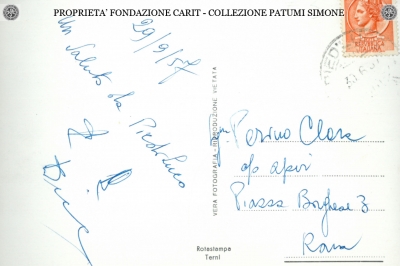 PROPRIETA' FONDAZIONE CARIT - COLLEZIONE PATUMI SIMONE
29/9/57
Un Saluto da Piediluco
VERA FOTOGRAFIA - RIPRODUZIONE VIETATA
PIED
Perino Clara
c/o
Piazza Borghese 3
Roma
Rotostampa
Terni